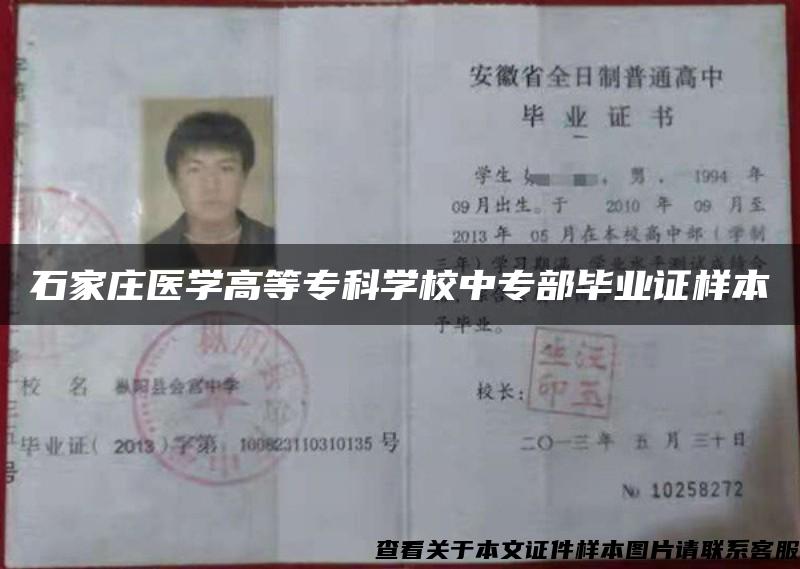 安徽省全日制普通高中
毕业证书
学生 ，男，1994 年
09月出生。于 2010 年 09 月至
2013年 05月在本校高中部（学制
三年）学习期满，学业水平测试成绩合
石家庄医学高等专科学校中专部毕业证样本
予毕业。
校 名 枞阳县会宫中学
校长：
毕业证（2013）字第 100823110310135 号
二〇一三年 五月三十日
№ 10258272
查看关于本文证件样本图片请联系客服